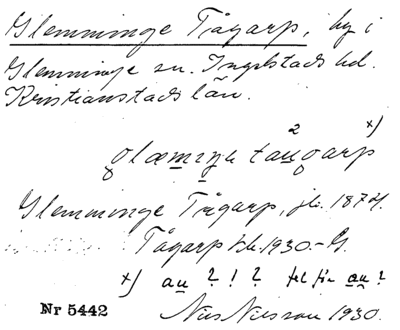 Glemminge Tågarp, by i
Glemminge sn. Ingelstads hd.
Kristianstads län.
2 x)
glæmiŋe tau̯garp
Glemminge Tågarp, jb. 1874.
Tågarp tk. 1930. - G.
x) au ? ! ? fel för au ?
Nr 5442 Nils Nilsson 1930.